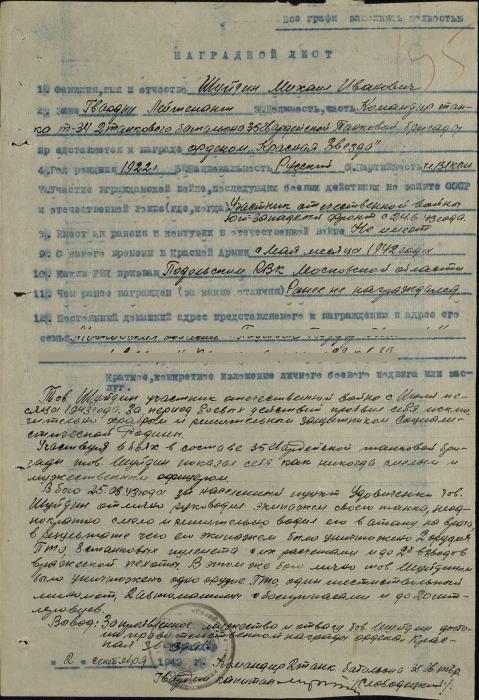 Все графы заполнить полностью
195
НАГРАДНОЙ ЛИСТ
1. Фамилия, имя и отчество Шуйдин Михаил Иванович
2. Звание Гвардии Лейтенант 3. Должность, часть Командир тан-
ка Т-34 2 танкового батальона 35 Гвардейской Танковой бригады
представляется к награде орденом „Красная Звезда"
4. Год рождения 1922 г. 5. Национальность Русский 6. Партийность чл ВЛКСМ
7. Участие в гражданской войне, последующих боевых действиях по защите СССР
и отечественной войне (где, когда) Участник отечественной войны
Юго-Западный фронт с 24.6 43 года.
8. Имеет ли ранения и контузии в отечественной войне Не имеет
9. С какого времени в Красной Армии с Мая месяца 1942 года
10. Каким РВК призван Подольским РВК Московской области
11. Чем ранее награжден (за какие отличия) Ранее не награждался
12. Постоянный домашний адрес представляемого к награждению и адрес его
семьи
Краткое, конкретное изложение личного боевого подвига или зас-
луг.
Тов. Шуйдин участник отечественной войны с Июля ме-
сяца 1943 года. За период боевых действий проявил себя исклю-
чительно храбрым и решительным защитником Социали-
стической Родины.
Участвуя в боях в составе 35 Гвардейской танковой бри-
гады тов. Шуйдин показал себя как никогда смелым и
мужественным офицером.
В бою 25.08.43 года за населенный пункт Удовиченко тов.
Шуйдин отлично руководил экипажем своего танка, неод-
нократно смело и решительно водил его в атаку на врага,
в результате чего его экипажем было уничтожено 2 орудия
ПТО, 3 станковых пулемета с их расчетами и до 2х взводов
вражеской пехоты. В этом же бою лично тов Шуйдиным
было уничтожено одно орудие ПТО, один шестиствольный
миномет, 2 автомашины с боеприпасами и до 20 гит-
леровцев.
Вывод: За проявленное мужество и отвагу тов Шуйдин досто-
ин правительственной награды ордена Крас-
ная Звезда
„2" сентября 1943 г.
Командир 2 танк. батальона 35 Гв. тбр
Гвардии капитан (Слободецкий).